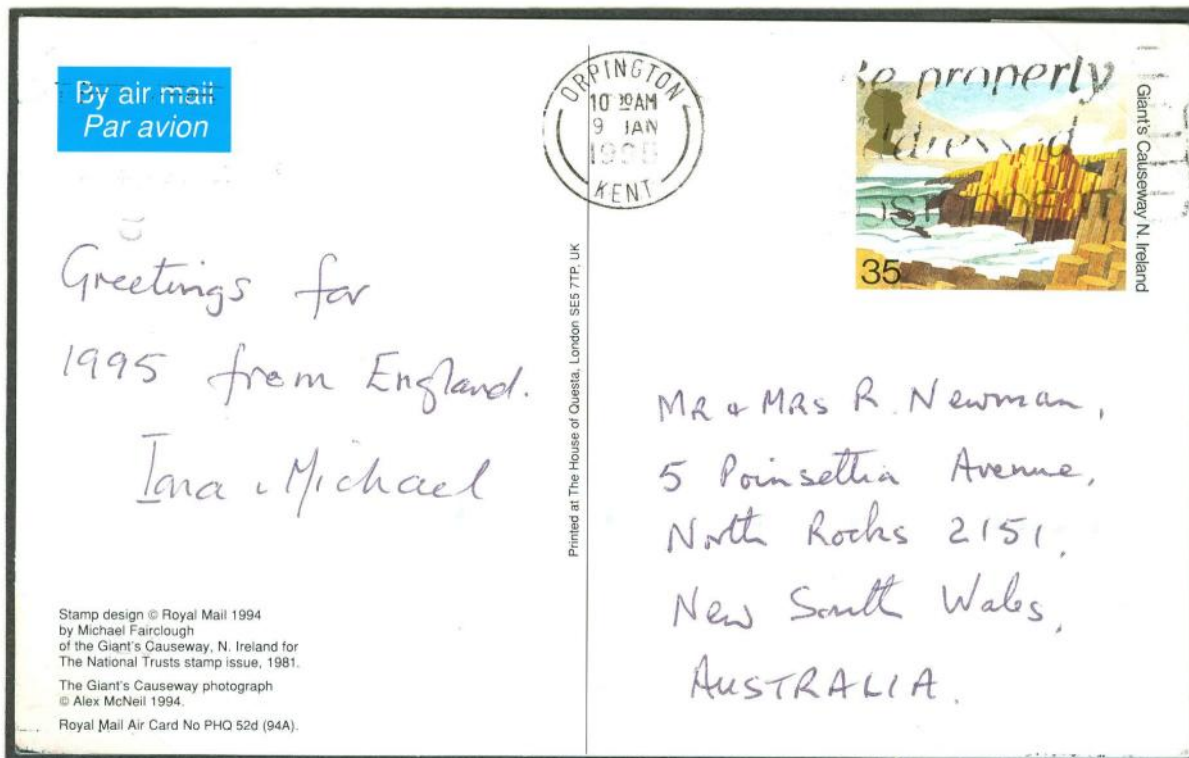 By air mail
Par avion
ORPINGTON
10 30AM
9 JAN
1995
KENT
Be properly
addressed
35
Giant's Causeway N. Ireland
Greetings for
1995 from England.
Michael
Printed at The House of Questa, London SE5 7TP, UK
Mr & Mrs R. Newman,
5 Poinsettia Avenue,
North Rocks 2151,
New South Wales,
AUSTRALIA.
Stamp design © Royal Mail 1994
by Michael Fairclough
of the Giant's Causeway, N. Ireland for
The National Trusts stamp issue, 1981.
The Giant's Causeway photograph
© Alex McNeil 1994.
Royal Mail Air Card No PHQ 52d (94A).